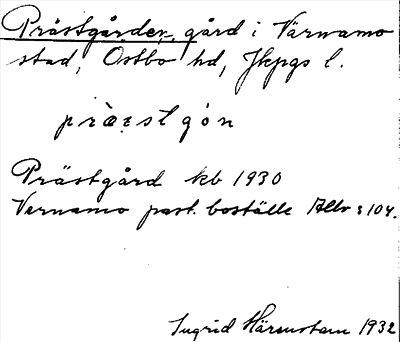 Prästgården, gård i Värnamo
stad, Östbo hd, Jkpgs l.
præstgón
Prästgård kb 1930
Vernamo past. boställe Allv s 104.
Ingrid Härenstam 1932